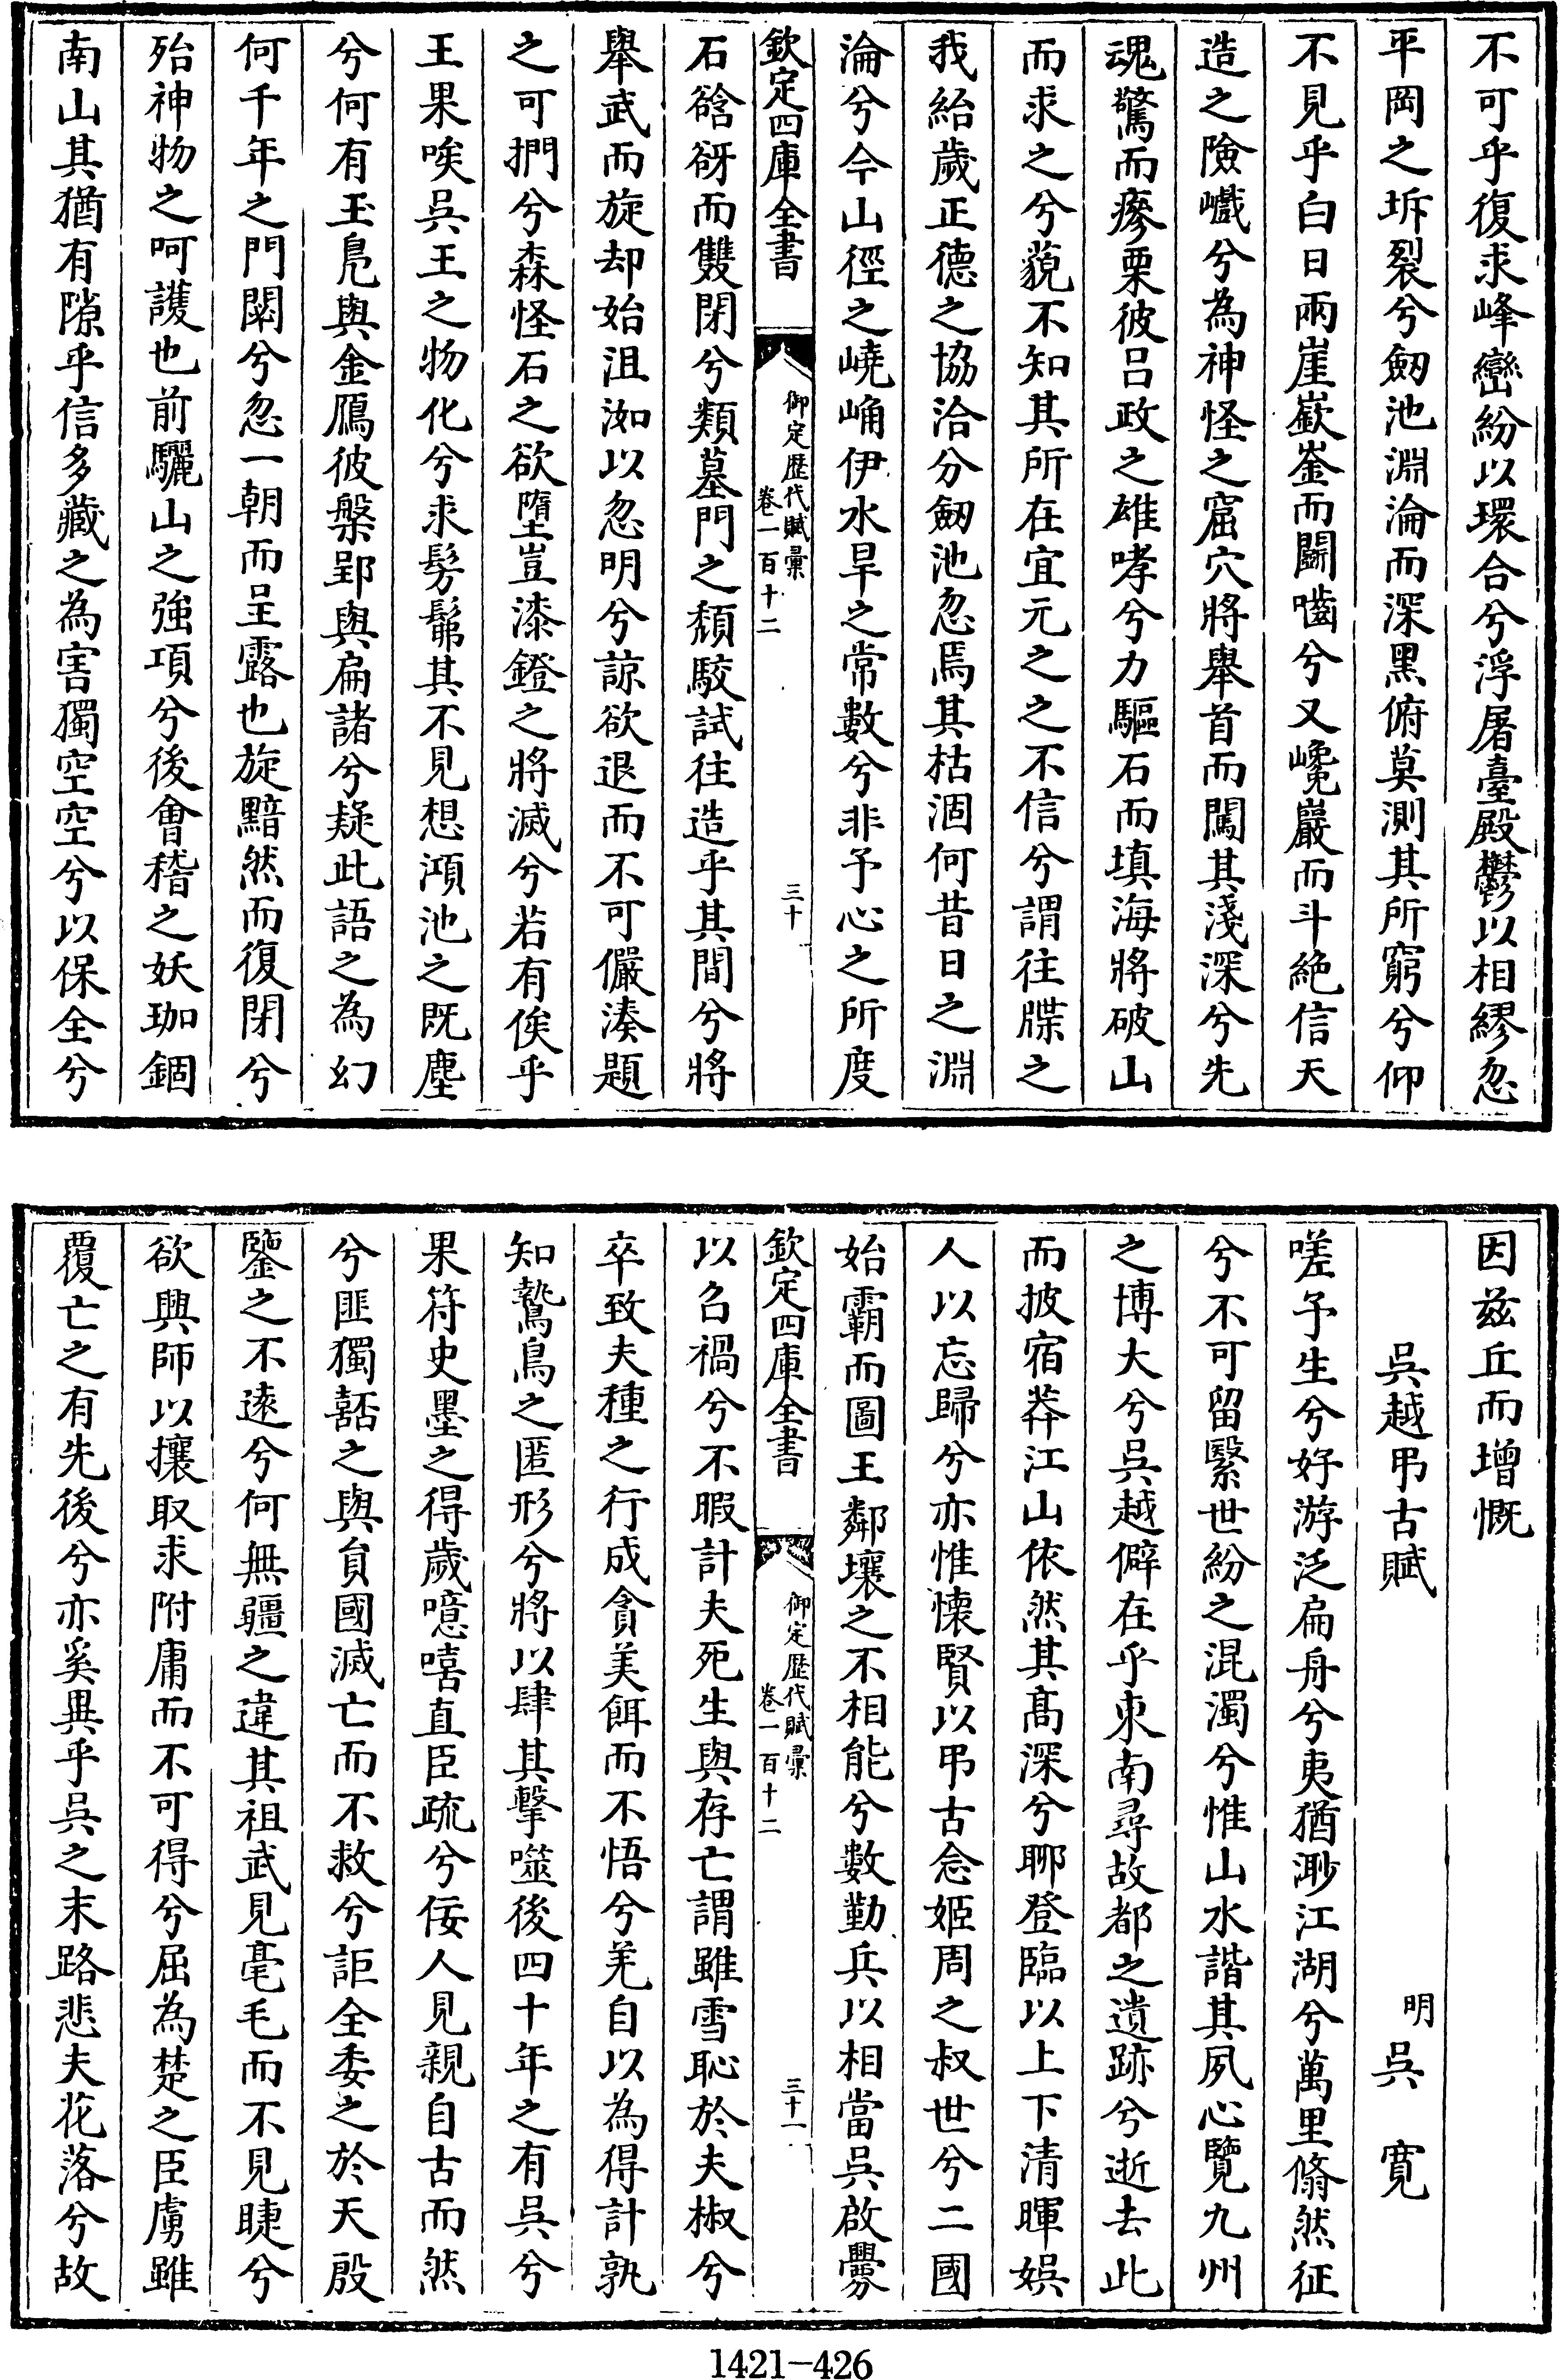 不可乎復求峰巒紛以環合兮浮屠臺殿鬱以相繆忽
平岡之坼裂兮劒池淵淪而深黑俯莫測其所窮兮仰
不見乎白日兩崖嶔崟而鬭嚙兮又巉巖而斗絶信天
造之險巇兮為神怪之窟穴將舉首而闖其淺深兮先
魂驚而瘮栗彼吕政之雄哮兮力驅石而填海將破山
而求之兮藐不知其所在宜元之之不信兮謂往牒之
我紿歲正德之協洽分劒池忽焉其枯涸何昔日之淵
淪兮今山徑之嶢崅伊水旱之常數兮非予心之所度
欽定四庫全書
御定歴代賦彚
卷一百十二
三十
石谽谺而雙閉兮類墓門之頹駮試往造乎其間兮將
舉武而旋却始沮洳以忽明兮諒欲退而不可儼湊題
之可捫兮森怪石之欲墮豈漆鐙之將滅兮若有俟乎
王果唉吳王之物化兮求髣髴其不見想澒池之既塵
兮何有玉鳬與金鴈彼槃郢與扁諸兮疑此語之為幻
何千年之門閟兮忽一朝而呈露也旋黯然而復閉兮
殆神物之呵護也前驪山之強項兮後會稽之妖珈錮
南山其猶有隙乎信多藏之為害獨空空兮以保全兮
因兹丘而增慨
吳越弔古賦
明吳寛
嗟予生兮好游泛扁舟兮夷猶渺江湖兮萬里翛然征
兮不可留緊世紛之混濁兮惟山水諧其夙心覽九州
之博大兮吳越僻在乎東南尋故都之遺跡兮逝去此
而披宿莽江山依然其髙深兮聊登臨以上下清暉娯
人以忘歸兮亦惟懐賢以弔古念姬周之叔世兮二國
始霸而圖王鄰壤之不相能兮數勤兵以相當吳啟釁
欽定四庫全書
御定歴代賦彚
卷一百十二
三十一
以召禍兮不暇計夫死生與存亡謂雖雪恥於夫椒兮
卒致夫種之行成貪美餌而不悟兮羌自以為得計孰
知鷙鳥之匿形兮將以肆其擊噬後四十年之有吳兮
果符史墨之得歲噫嘻直臣疏兮佞人見親自古而然
兮匪獨嚭之與貟國滅亡而不救兮詎全委之於天殷
鑒之不逺兮何無疆之違其祖武見毫毛而不見睫兮
欲興師以攘取求附庸而不可得兮屈為楚之臣虜雖
覆亡之有先後兮亦奚異乎吳之末路悲夫花落兮故
1421—426